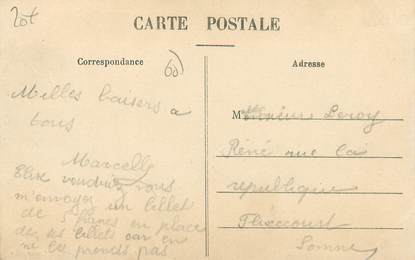 20f
CARTE POSTALE
Correspondance
60
Adresse
Milles baisers a
tous
Marcelle
Elise voudriez vous
m'envoyer un billet
de 5 francs en place
de ses billets car on
ne les prends pas
Monsieur Leroy
René rue la
republique
Flixecourt
Somme